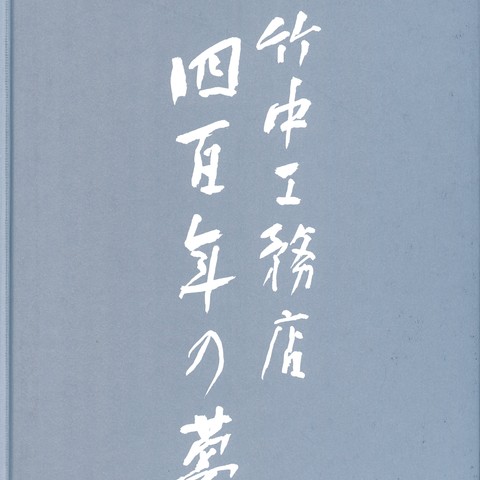 竹中工務店
四百年の夢